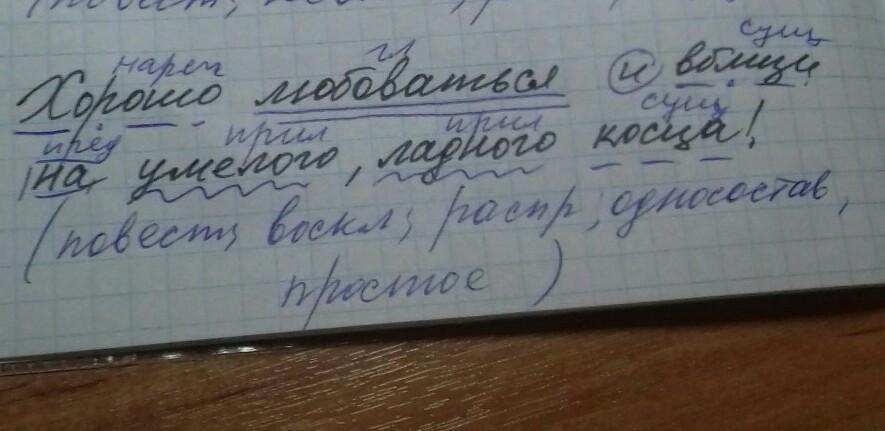 нареч гл сущ
Хорошо любоваться и вблизи
пред прил прил сущ
на умелого, ладного косца!
(повест; воскл; распр; односостав,
простое )